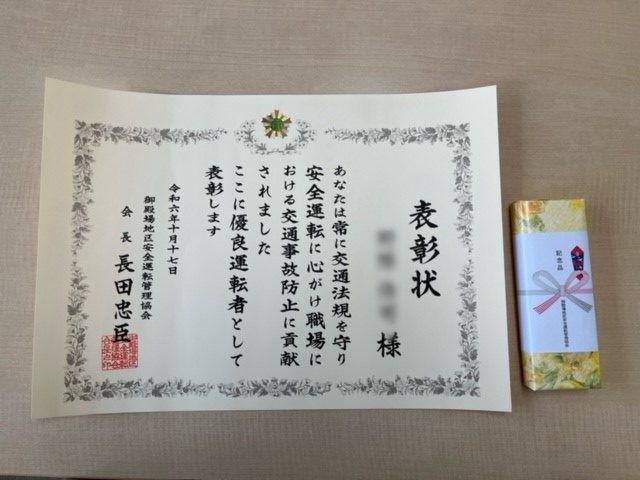 表彰状
様
あなたは常に交通法規を守り
安全運転に心がけ職場に
おける交通事故防止に貢献
されました
ここに優良運転者として
表彰します
令和六年十月十七日
御殿場地区安全運転管理協会
会長 長田忠臣
記念品